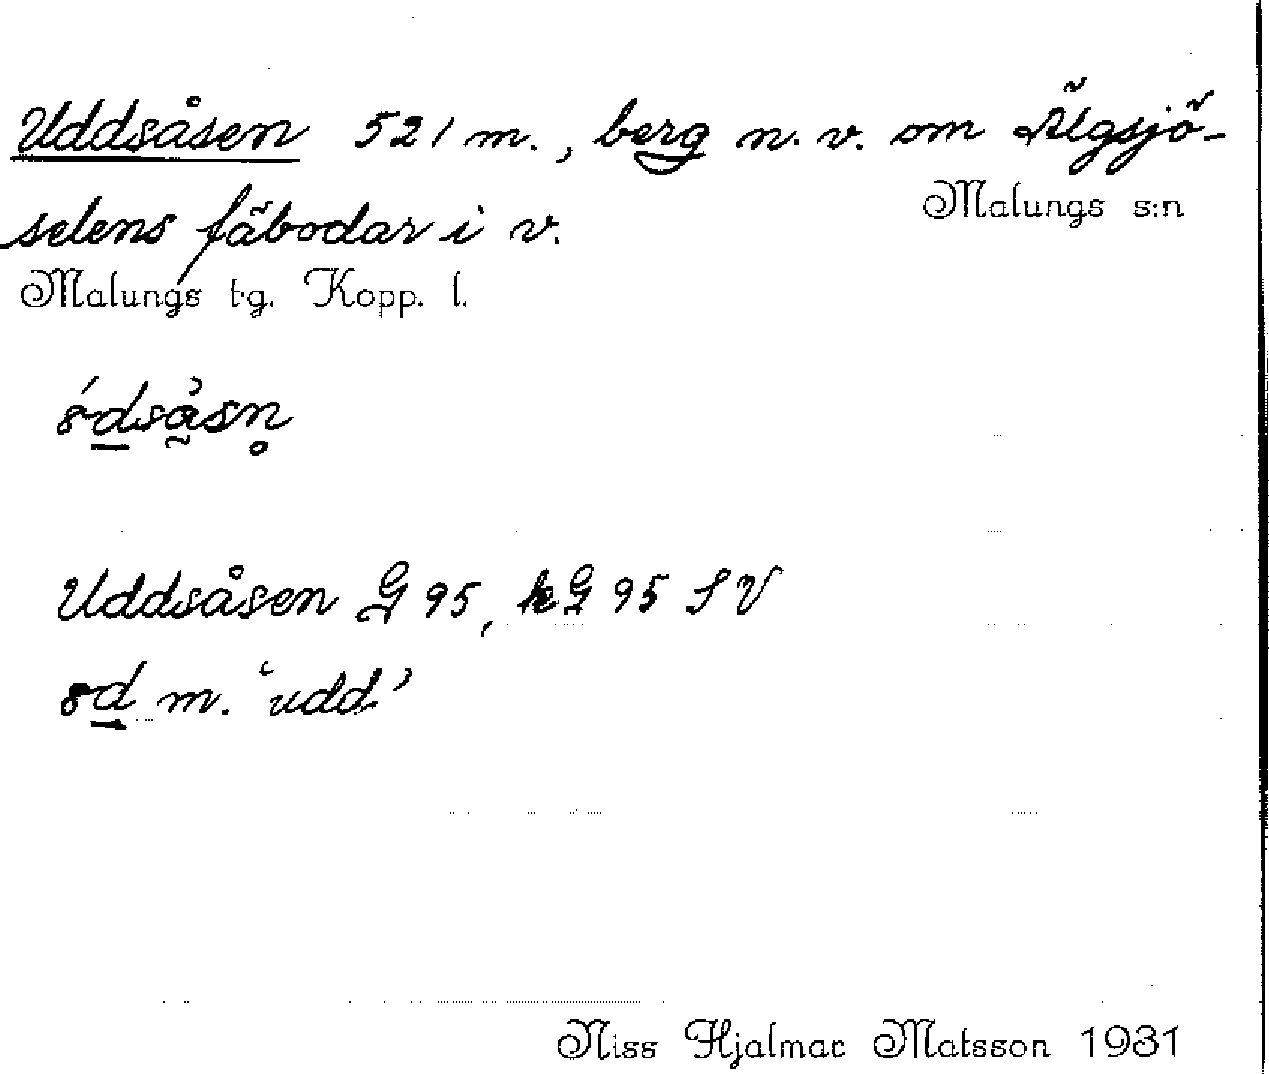 Uddsåsen 521 m., berg n.v. om Älgsjö-
Malungs s:n
selens fäbodar i v.
Malungs tg. Kopp. l.
Uddsåsen G 95, kG 95 SV
m. 'udd'
Niss Hjalmar Matsson 1931